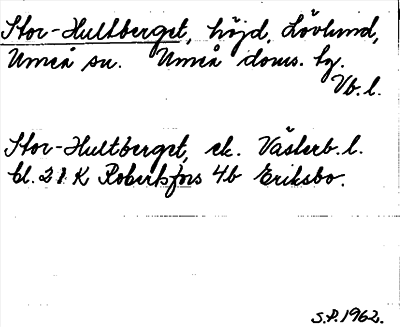 Stor-Hultberget, höjd, Lövlund,
Umeå sn. Umeå doms. tg.
Vb. l.
Stor-Hultberget, ek. Västerb. l.
bl. 21 K Robertsfors 4b Eriksbo.
S.P. 1962.